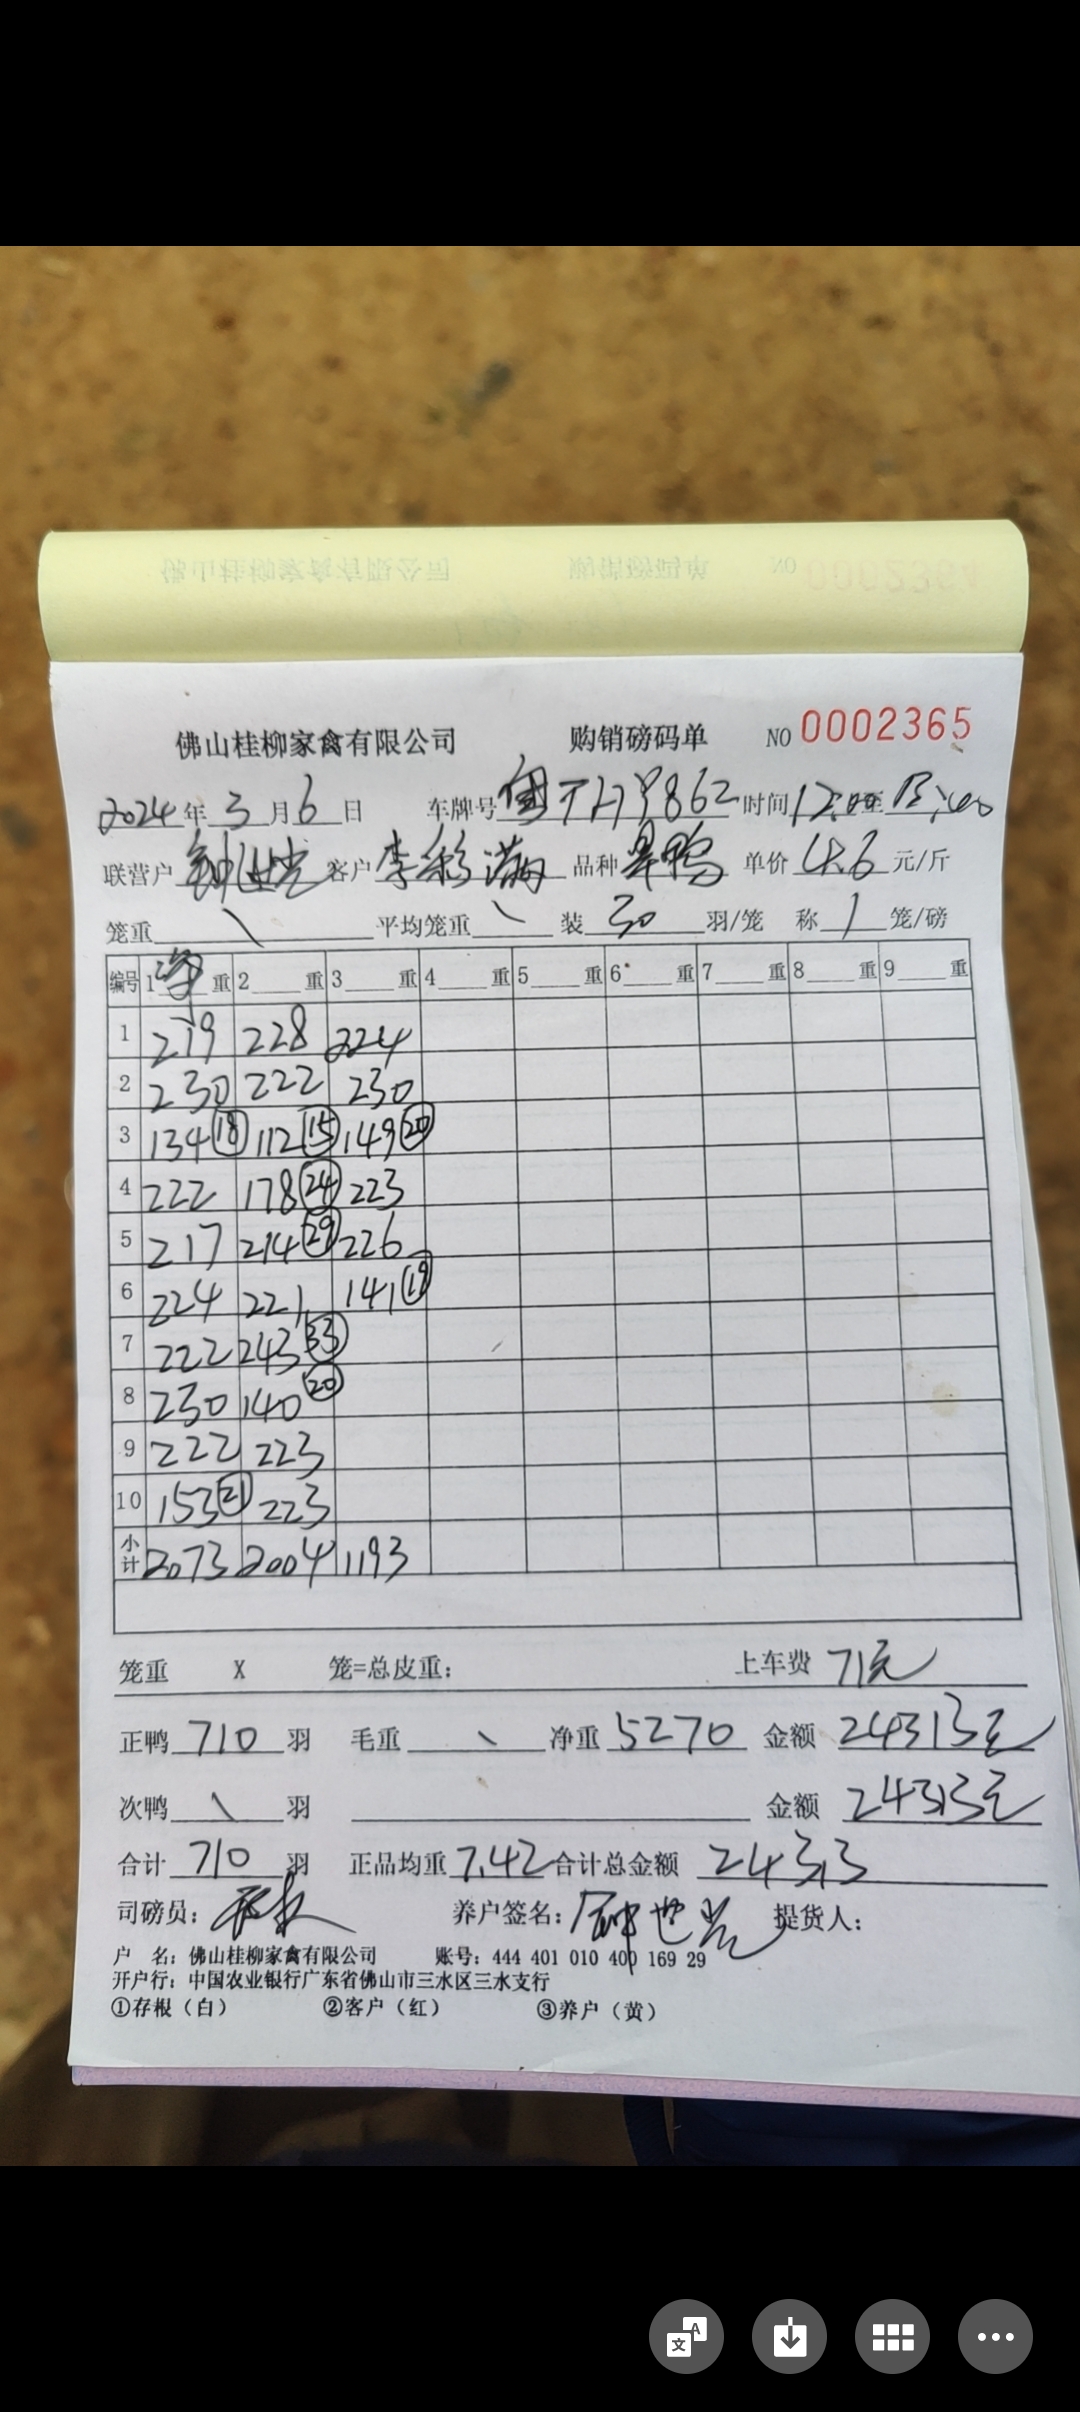 佛山桂柳家禽有限公司 购销磅码单 NO 0002365
2024年3月6日 车牌号 时间
联营户 客户 李彩满 品种 鸭 单价 4.6 元/斤
笼重 \ 平均笼重 \ 装 30 羽/笼 称 1 笼/磅
编号 1 净 重 2 重 3 重 4 重 5 重 6 重 7 重 8 重 9 重
1 219 228 224
2 230 222 230
3 134 18 112 15 149 20
4 222 178 24 223
5 217 214 29 226
6 224 221 141 19
7 222 243 33
8 230 140 20
9 222 223
10 153 21 223
小计 2073 2004 1193
笼重 X 笼=总皮重: 上车费 71元
正鸭 710 羽 毛重 \ 净重 5270 金额 24313元
次鸭 \ 羽 金额 24313元
合计 710 羽 正品均重 7.42 合计总金额 24313
司磅员: 养户签名: 提货人:
户 名: 佛山桂柳家禽有限公司 账号: 444 401 010 400 169 29
开户行: 中国农业银行广东省佛山市三水区三水支行
①存根(白) ②客户(红) ③养户(黄)